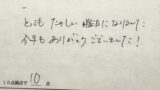 とても たのしい 瞬間になりました!
今年も ありがとう ございました!
10点満点で 10 点